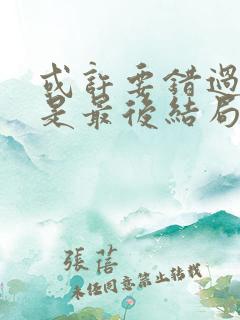 或許要錯過
是最後結局
張蓓
未经同意禁止转载